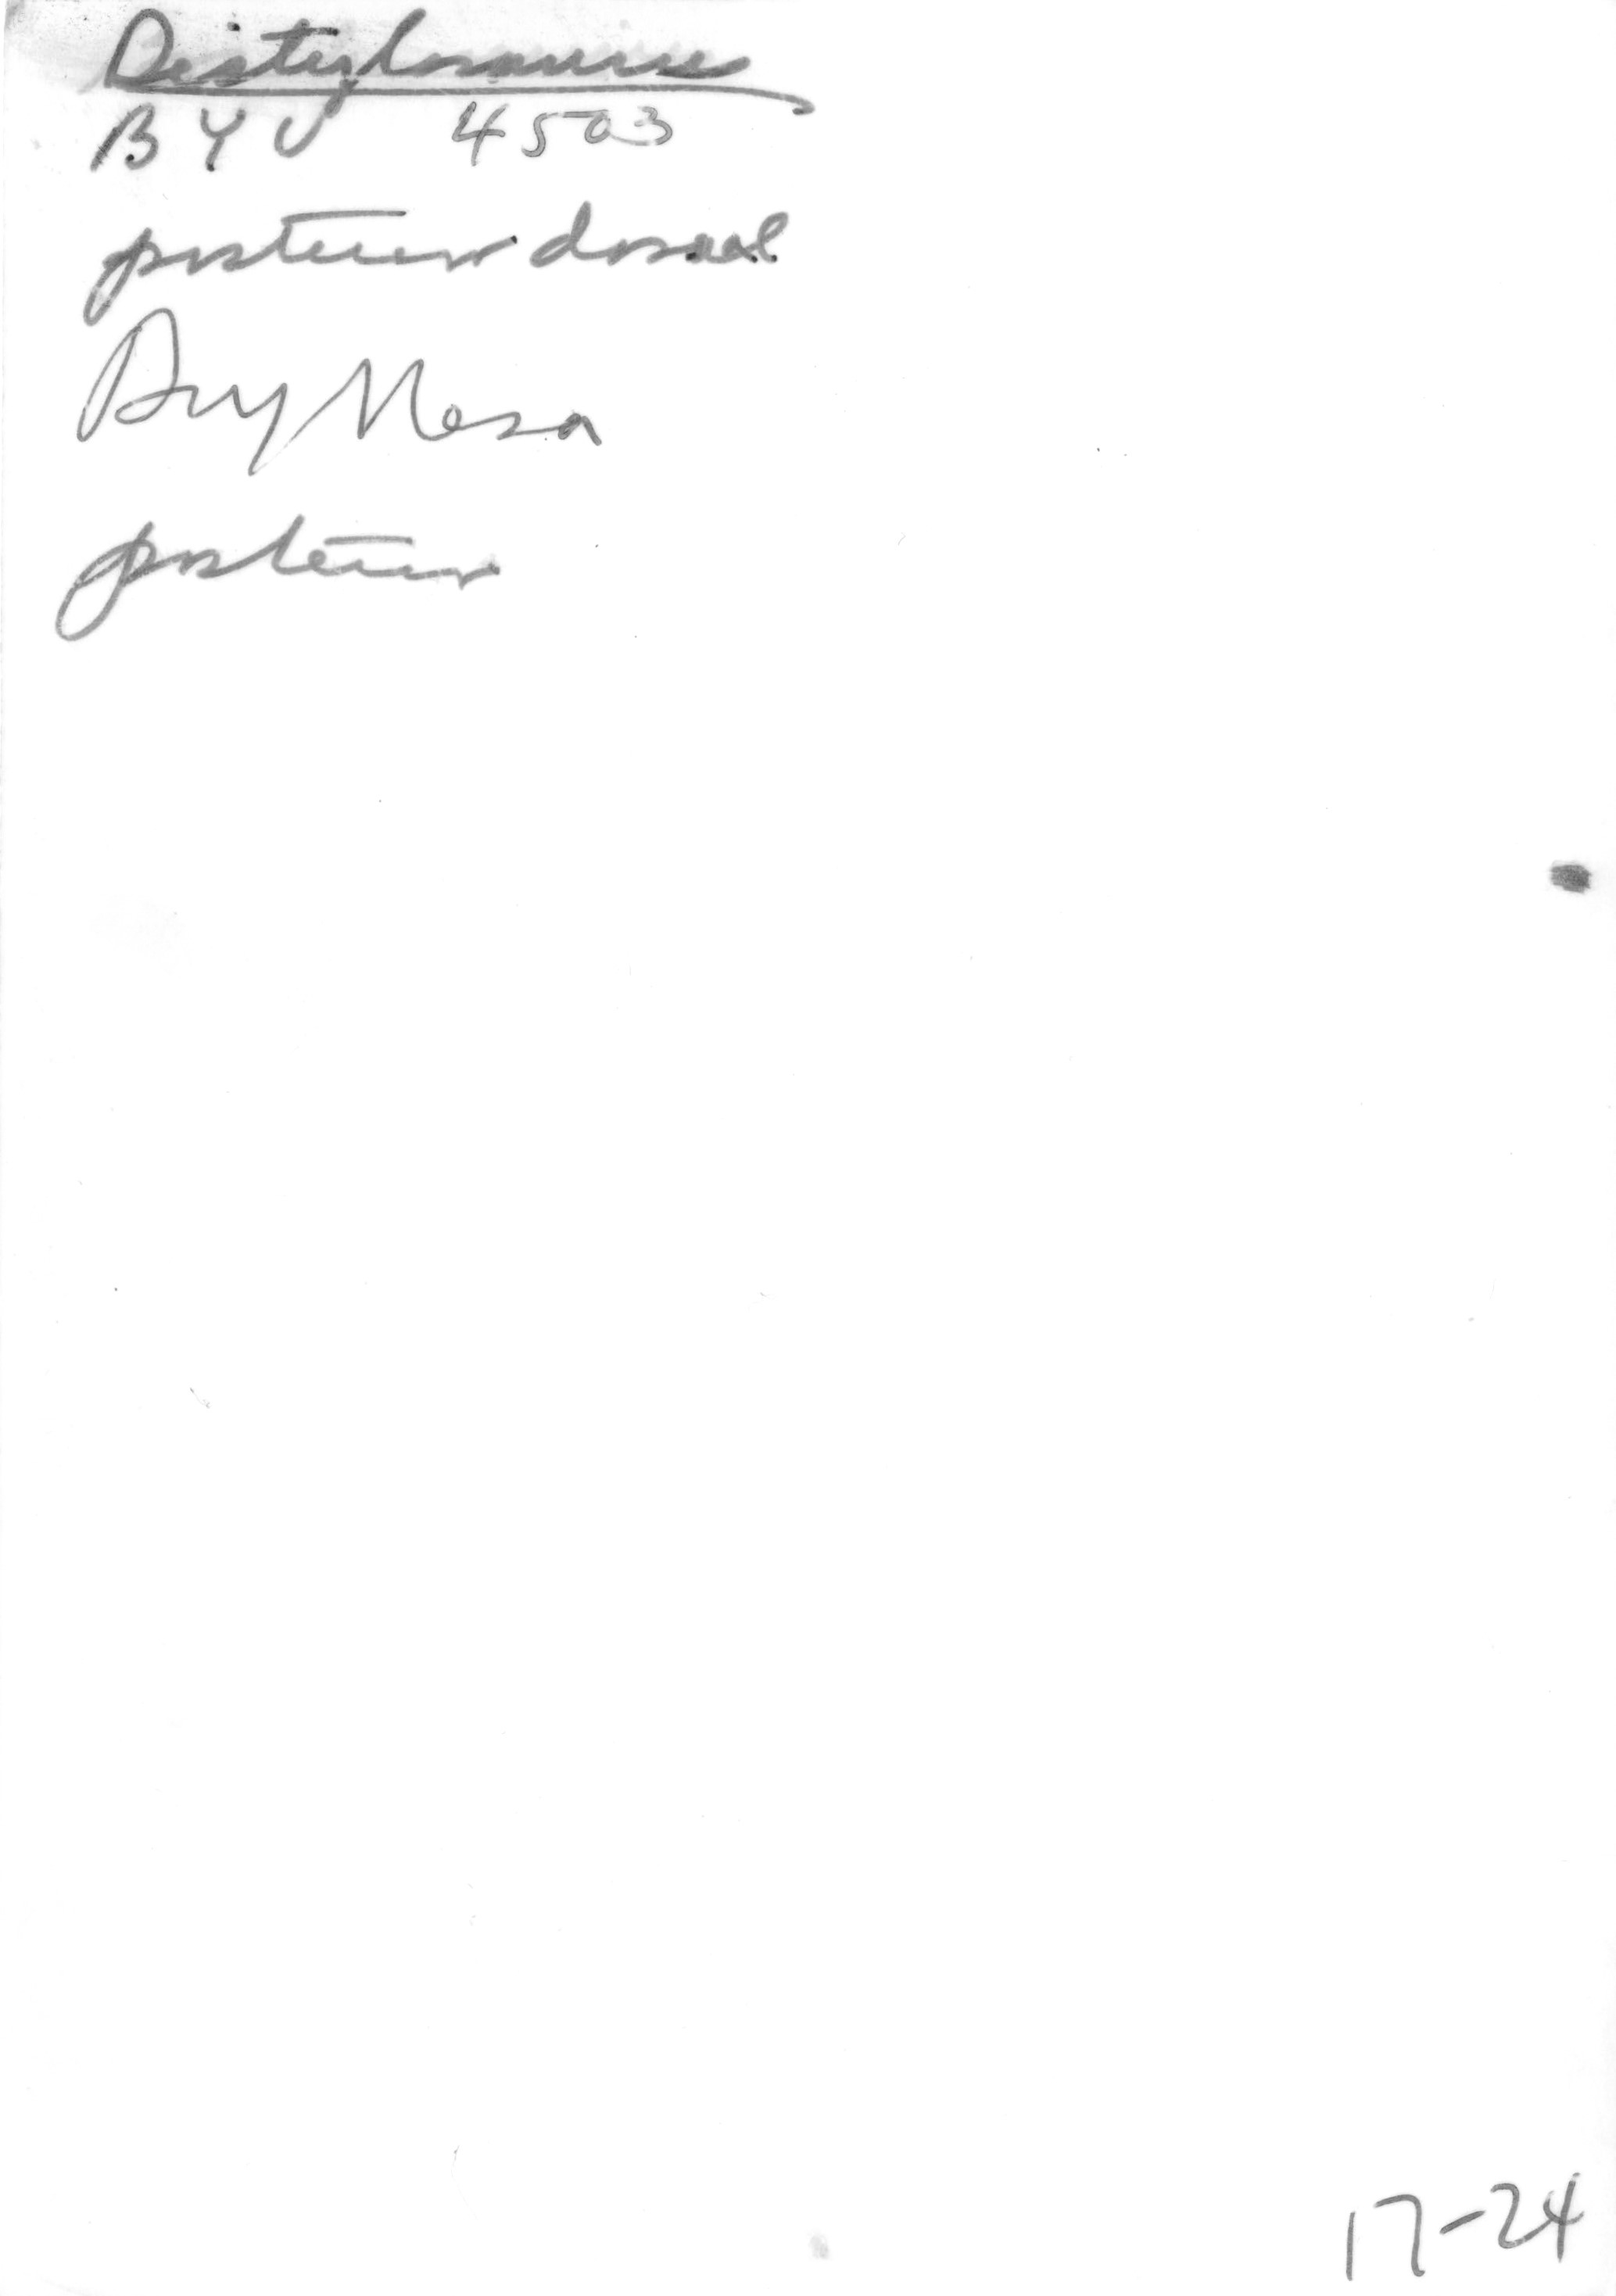 Distylosaurus
BYU 4503
posterior dorsal
Dry Mesa
posterior
17-24